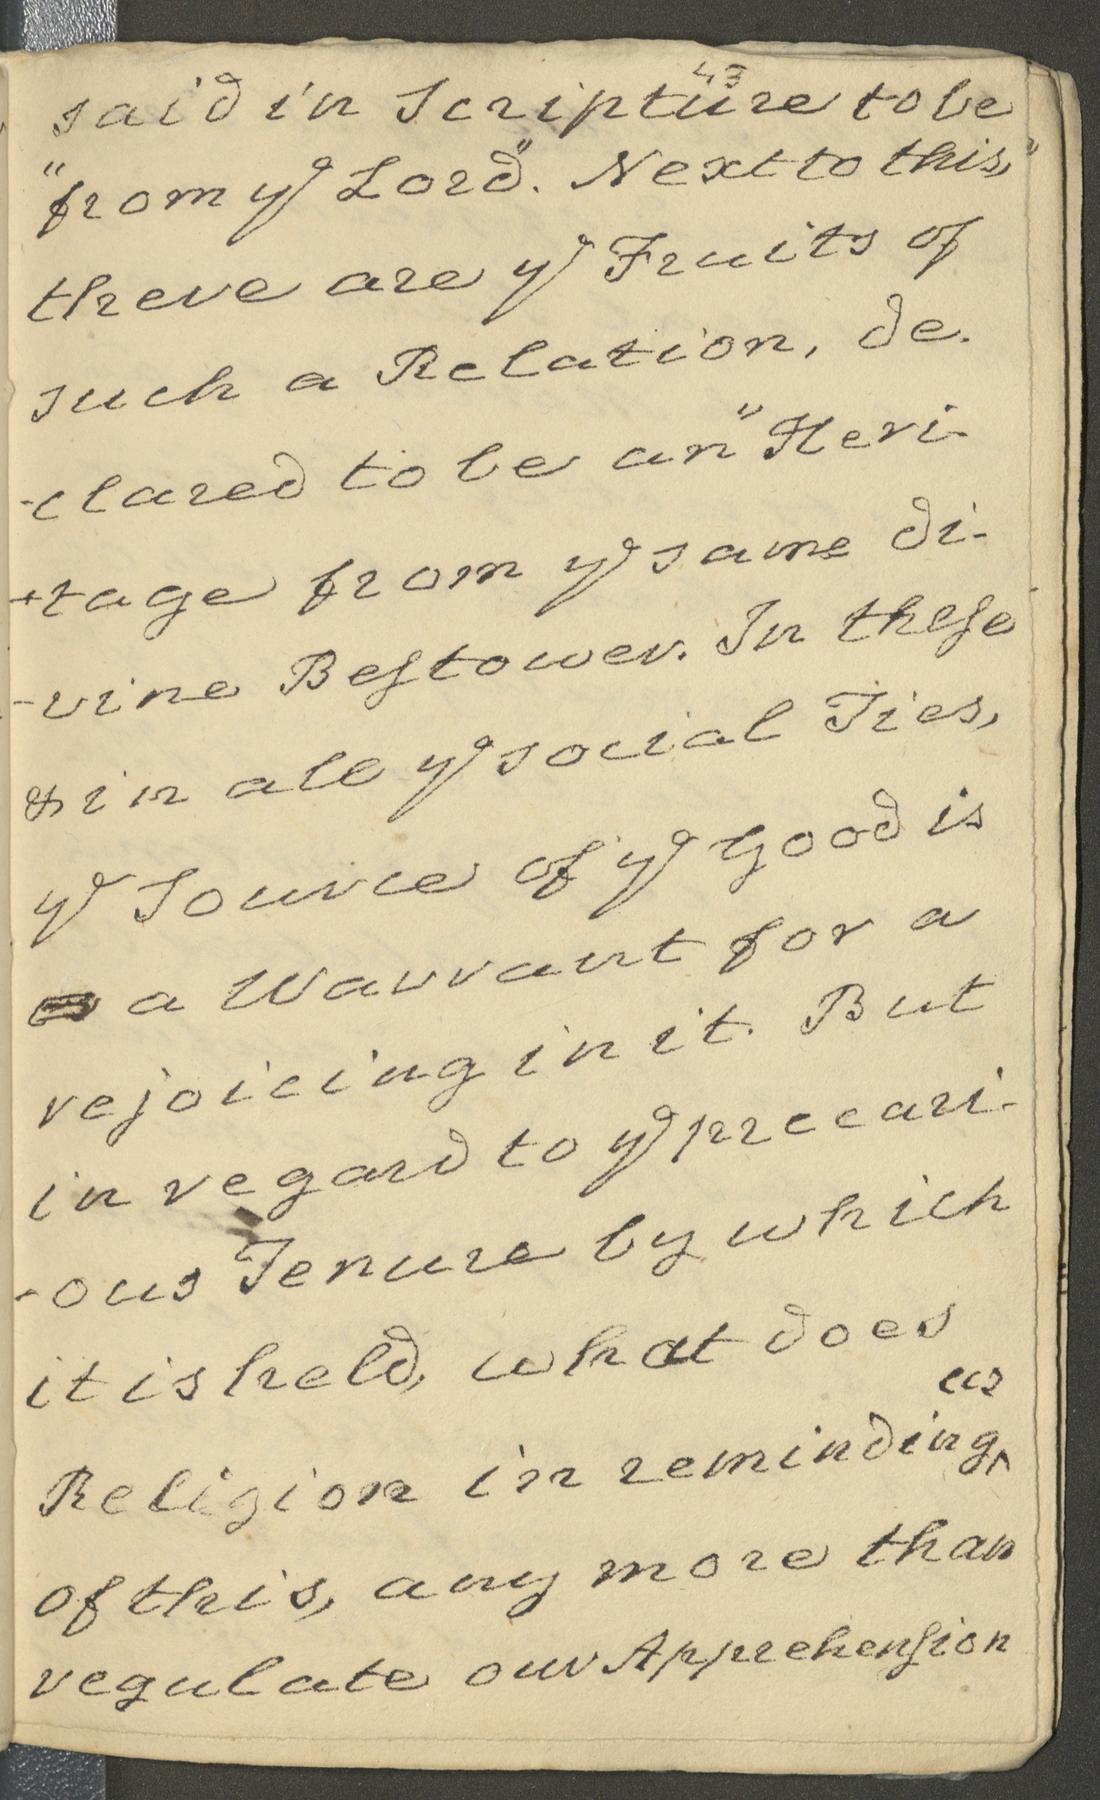 43
said in Scripture to be
"from yᵉ Lord". Next to this,
there are yᵉ Fruits of
such a Relation, de-
-clared to be an "Heri-
-tage" from yᵉ same di-
-vine Beſtower. In theſe
& in all yᵉ social Ties,
yᵉ Source of yᵉ Good is
a Warrant for a
rejoicing in it. But
in regard to yᵉ precari-
-ous Tenure by which
it is held, what does
us
Religion in reminding^
of this, any more than
regulate our Apprehenſion